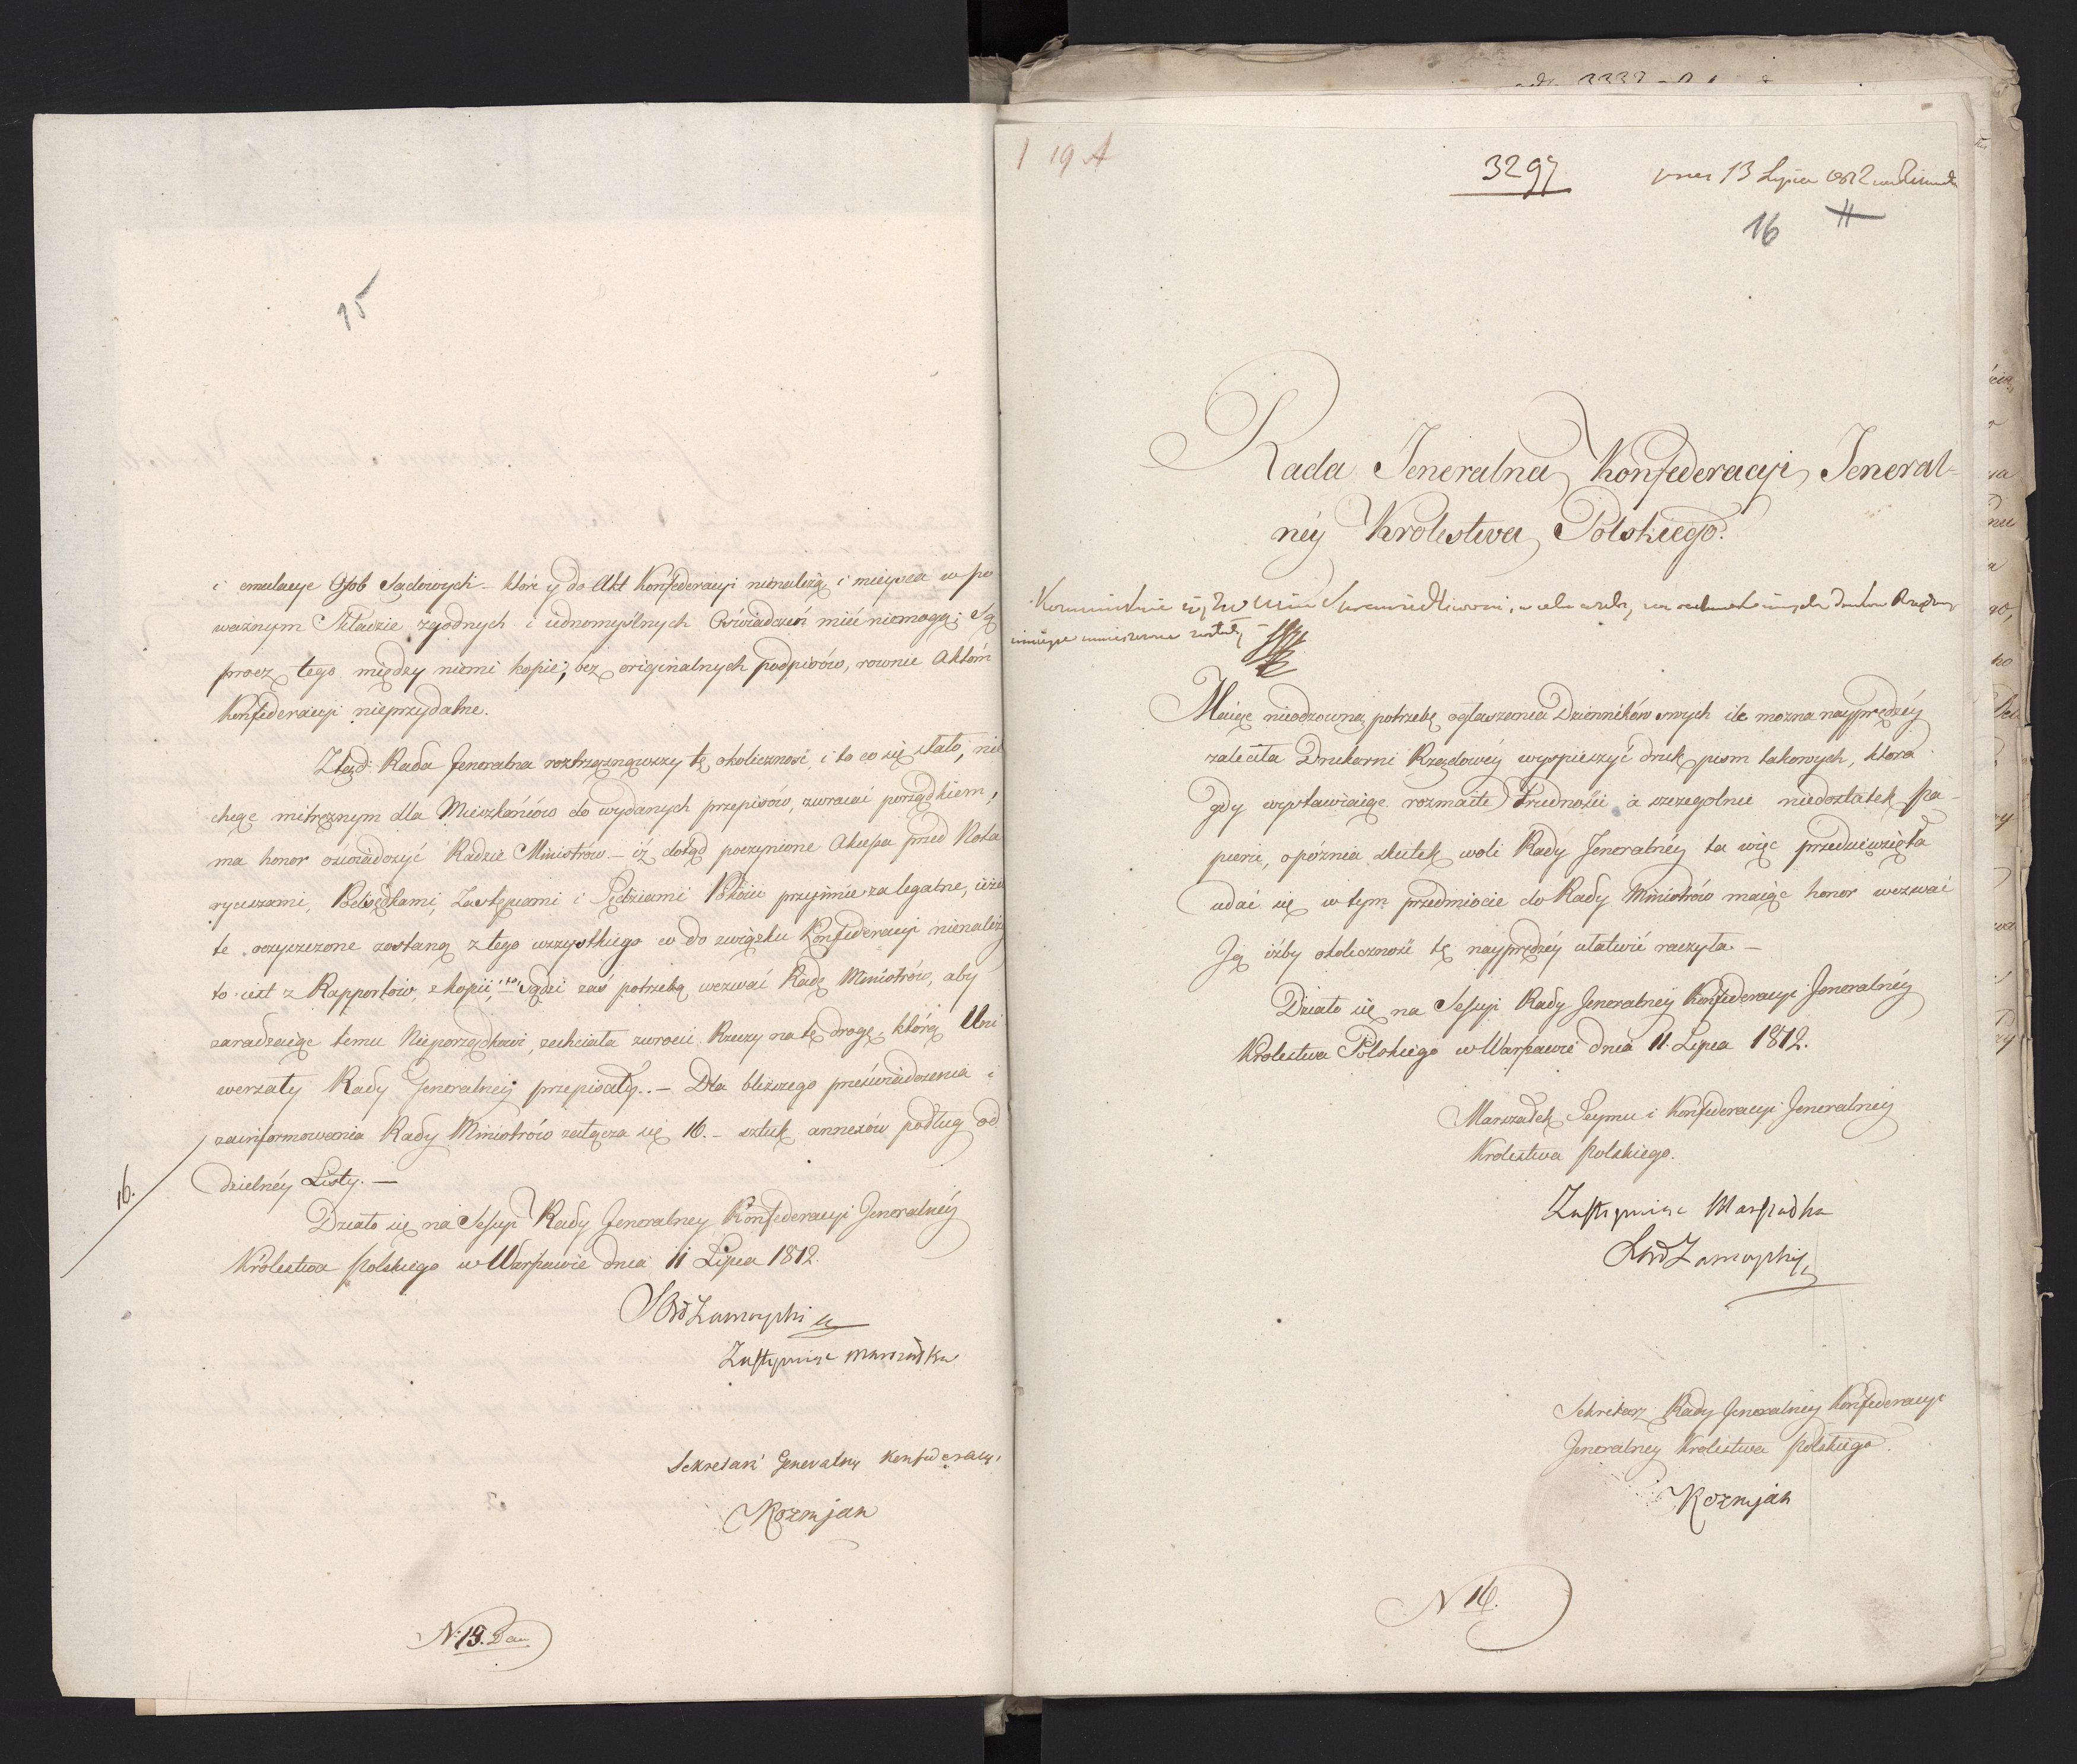 15
i emulacye Osob Sądowych – które y do Akt Konfederacyi nienależą i mieysca w po
ważnym Składzie zgodnych i iednomyślnych Oświadczeń mieć niemogą; Są
procz tego między niemi kopie, bez originalnych podpisów, rownie Aktom
Konfederacyi nieprzydatne.
Ztąd Rada Jeneralna roztrząsnąwszy tę okoliczność, i to co się stało, nie
chcąc mitrężnym dla Mieszkańców do wydanych przepisów, zwracać porządkiem,
ma honor oświadczyć Radzie Ministrów – iż dotąd poczynione Akcessa przed Nota
ryuszami, Podsędkami, Zastępcami i Sędziami Pokoiu przyimie za legalne, ieżeli
te oczyszczone zostaną z tego wszystkiego co do związku Konfederacyi nienależy
to iest z Rapportów, z kopii, Sądzi zaś potrzebą wezwać Radę Ministrów, aby
zaradzaiąc temu Nieporządkowi, zechciała zwrocić Rzeczy na tę drogę, którą Uni
wersały Rady Jeneralney przepisały. – Dla bliższego przeświadczenia i
zainformowania Rady Ministrów załącza się 16. – sztuk annexów podług od
dzielnéy Listy. –
16.
Działo się na Sessyi Rady Jeneralney Konfederacyi Jeneralnéy
Królestwa Polskiego w Warszawie dnia 11 Lipca 1812.
S Ord Zamoyski
Zastępuiąc Marszałka
Sekretarz Generalny Konfederacyi
Kozmjan
N: 15. Dan
1 19 A
3297
13 Lipca 1812
16 11
Rada Jeneralna Konfederacyi Jeneral-
néy Krolestwa Polskiego.
Maiąc nieodzowną potrzebę ogłaszania Dzienników swych ile można nayprędzéy
zaleciła Drukarni Rządowéy wyspieszyć druk pism takowych, która
gdy wystawiaiąc rozmaite trudności a szczególnie niedostatek pa-
pieru, opóźnia skutek woli Rady Jeneralnéy ta więc przedsięwzięła
udać się w tym przedmiocie do Rady Ministrów maiąc honor wezwać
Ją iżby okoliczność tę nayprędzéy ułatwić raczyła. –
Działo się na Sessyi Rady Jeneralnéy Konfederacyi Jeneralnéy
Krolestwa Polskiego w Warszawie dnia 11. Lipca 1812.
Marszałek Seymu i Konfederacyi Jeneralnéy
Krolestwa Polskiego.
Zastępuiąc Marszałka
S Ord Zamoyski
Sekretarz Rady Jeneralnéy Konfederacyi
Jeneralney Krolestwa Polskiego.
Kozmjan
N 16.